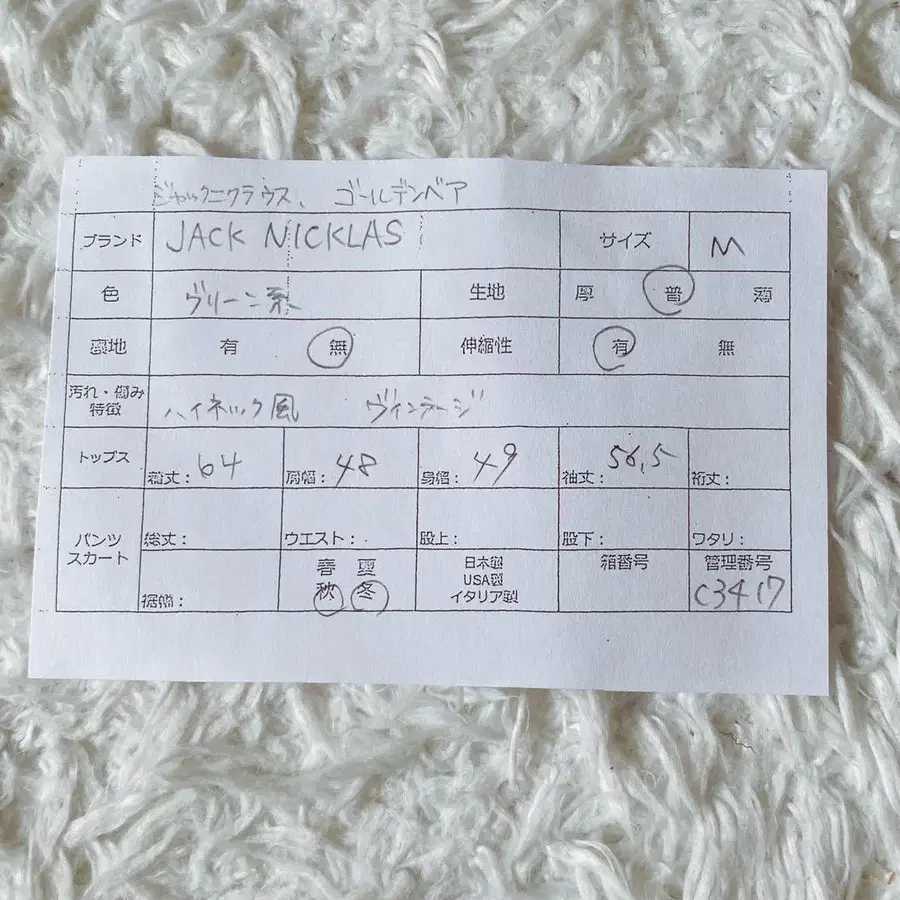 ジャックニクラウス、 ゴールデンベア
ブランド JACK NICKLAS サイズ M
色 グリーン系 生地 厚 普 薄
裏地 有 無 伸縮性 有 無
汚れ・傷み
特徴 ハイネック風 ヴィンテージ
トップス 総丈：64 肩幅：48 身幅：49 袖丈：56,5 裄丈：
パンツ
スカート 総丈： ウエスト： 股上： 股下： ワタリ：
裾幅： 春 夏 秋 冬 日本製 USA製 イタリア製 箱番号 管理番号 C3417